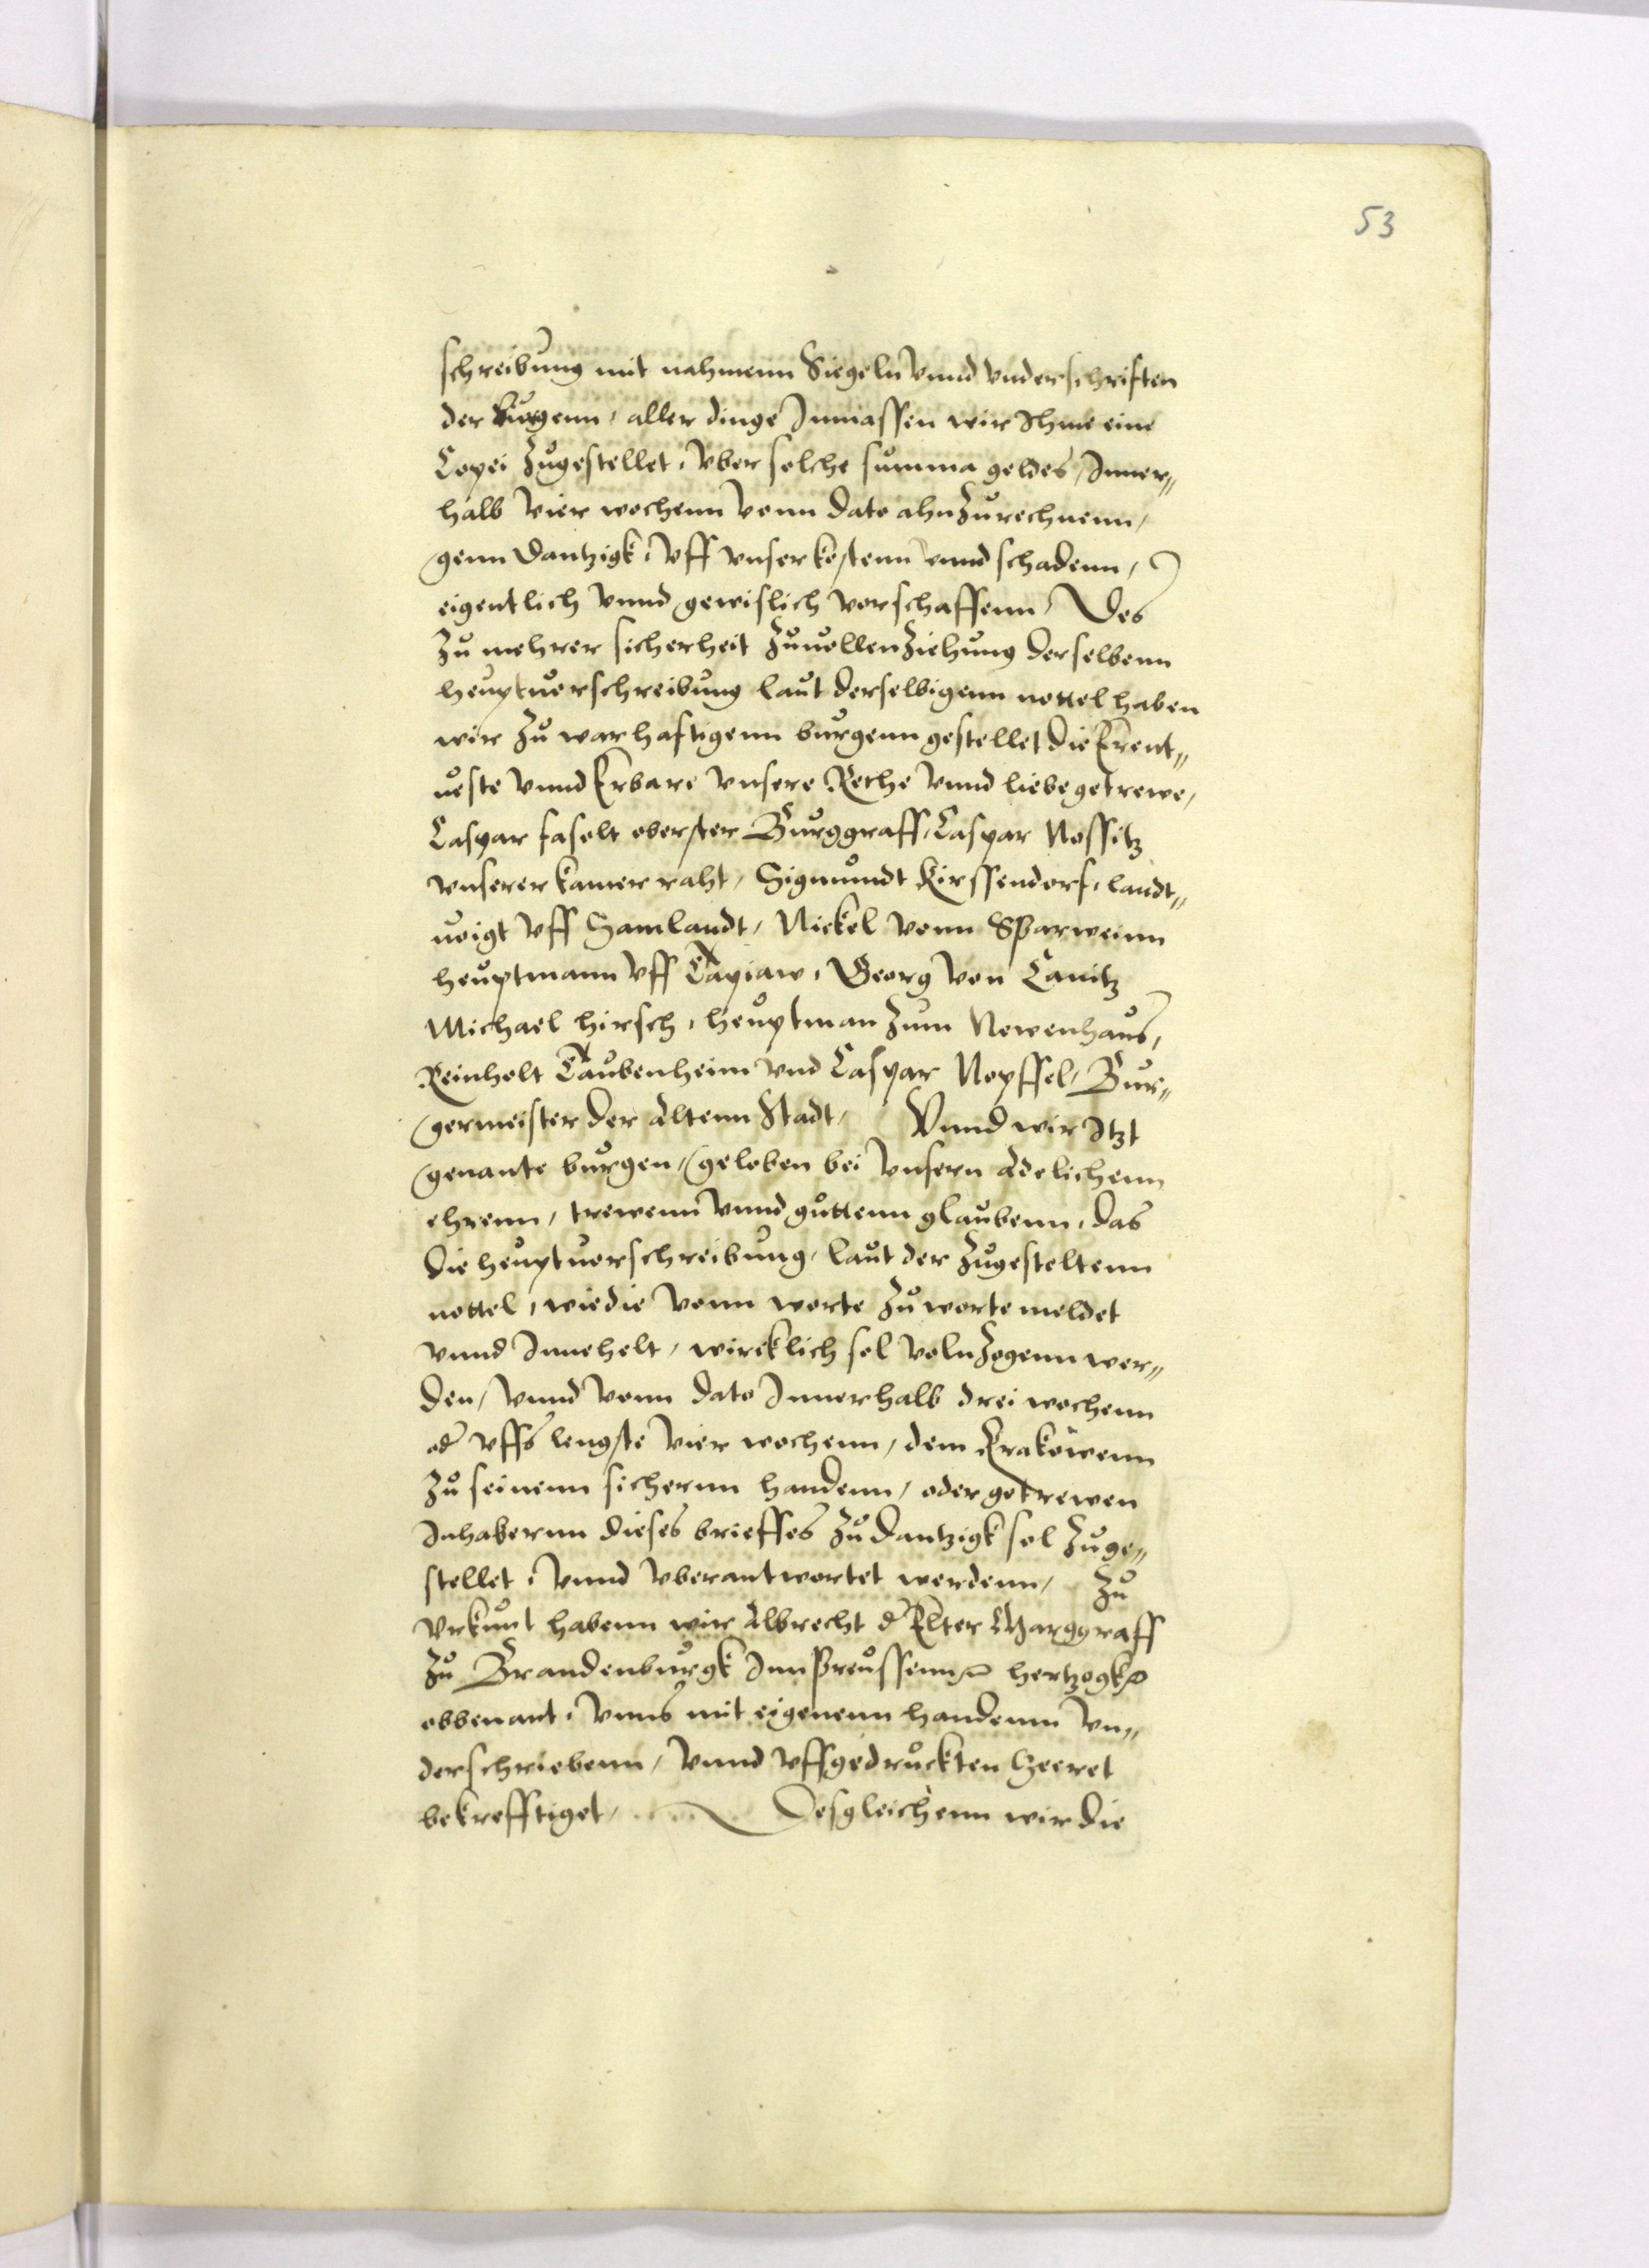 53
schreibung mit nahmenn Siegeln vnnd vnderschrifften
der burgenn, aller dinge Inmassen wir Ihme eine
Copei zugestellet, vber solche summa geldes, Inner„
halb vier wochenn vonn dato ahnzurechnenn,
genn Dantzigk, vff vnser kostenn vnnd schadenn,
eigentlich vnnd gewislich vorschaffenn, Des
zu mehrer sicherheit zuuollenziehung derselbenn
heuptuerschreibung laut derselbigenn nottel haben
wir zu warhafftigenn burgenn gestellet die Erent„
ueste vnnd Erbare vnsere Rethe vnnd liebe getrewe,
Caspar faselt oberster Burggraff, Caspar Nossitz
vnserer kamer raht, Sigmundt Kirssendorf, landt„
uoigt vff Samlandt, Nickel vonn Sparweinn
heuptmann vff Tapiaw, Georg von Canitz
Michael hirsch, heuptman zum Newenhaus,
Reinholt Taubenheim vnd Caspar Noypffel, Bur„
germeister der Altenn Stadt, Vnnd wir Itzt
genante burgen, geloben bei vnsern Adelichenn
ehrenn, trewenn vnnd guttenn glaubenn, das
die heuptuorschreibung, laut der zugesteltenn
nottel, wie die vonn worte zu worte meldet
vnnd Innehelt, wircklich sol volnzogenn wer„
den, vnnd vonn dato Innerhalb drei wochenn
od vffs lengste vier wochenn, dem Krakowenn
zu seinenn sichernn handenn, oder getrewen
Inhabernn dieses brieffes zu Dantzigk sol zuge„
stellet, vnnd vberantwortet werdenn, Zu
vrkunt habenn wir Albrecht d Elter Marggraff
zu Brandenburgk Inn Preussenn hertzogk
obbenant, vnns mit eigenenn handenn vn„
derschriebenn, vnnd vffgedruckten Secret
bekrefftiget, Desgleichenn wir die